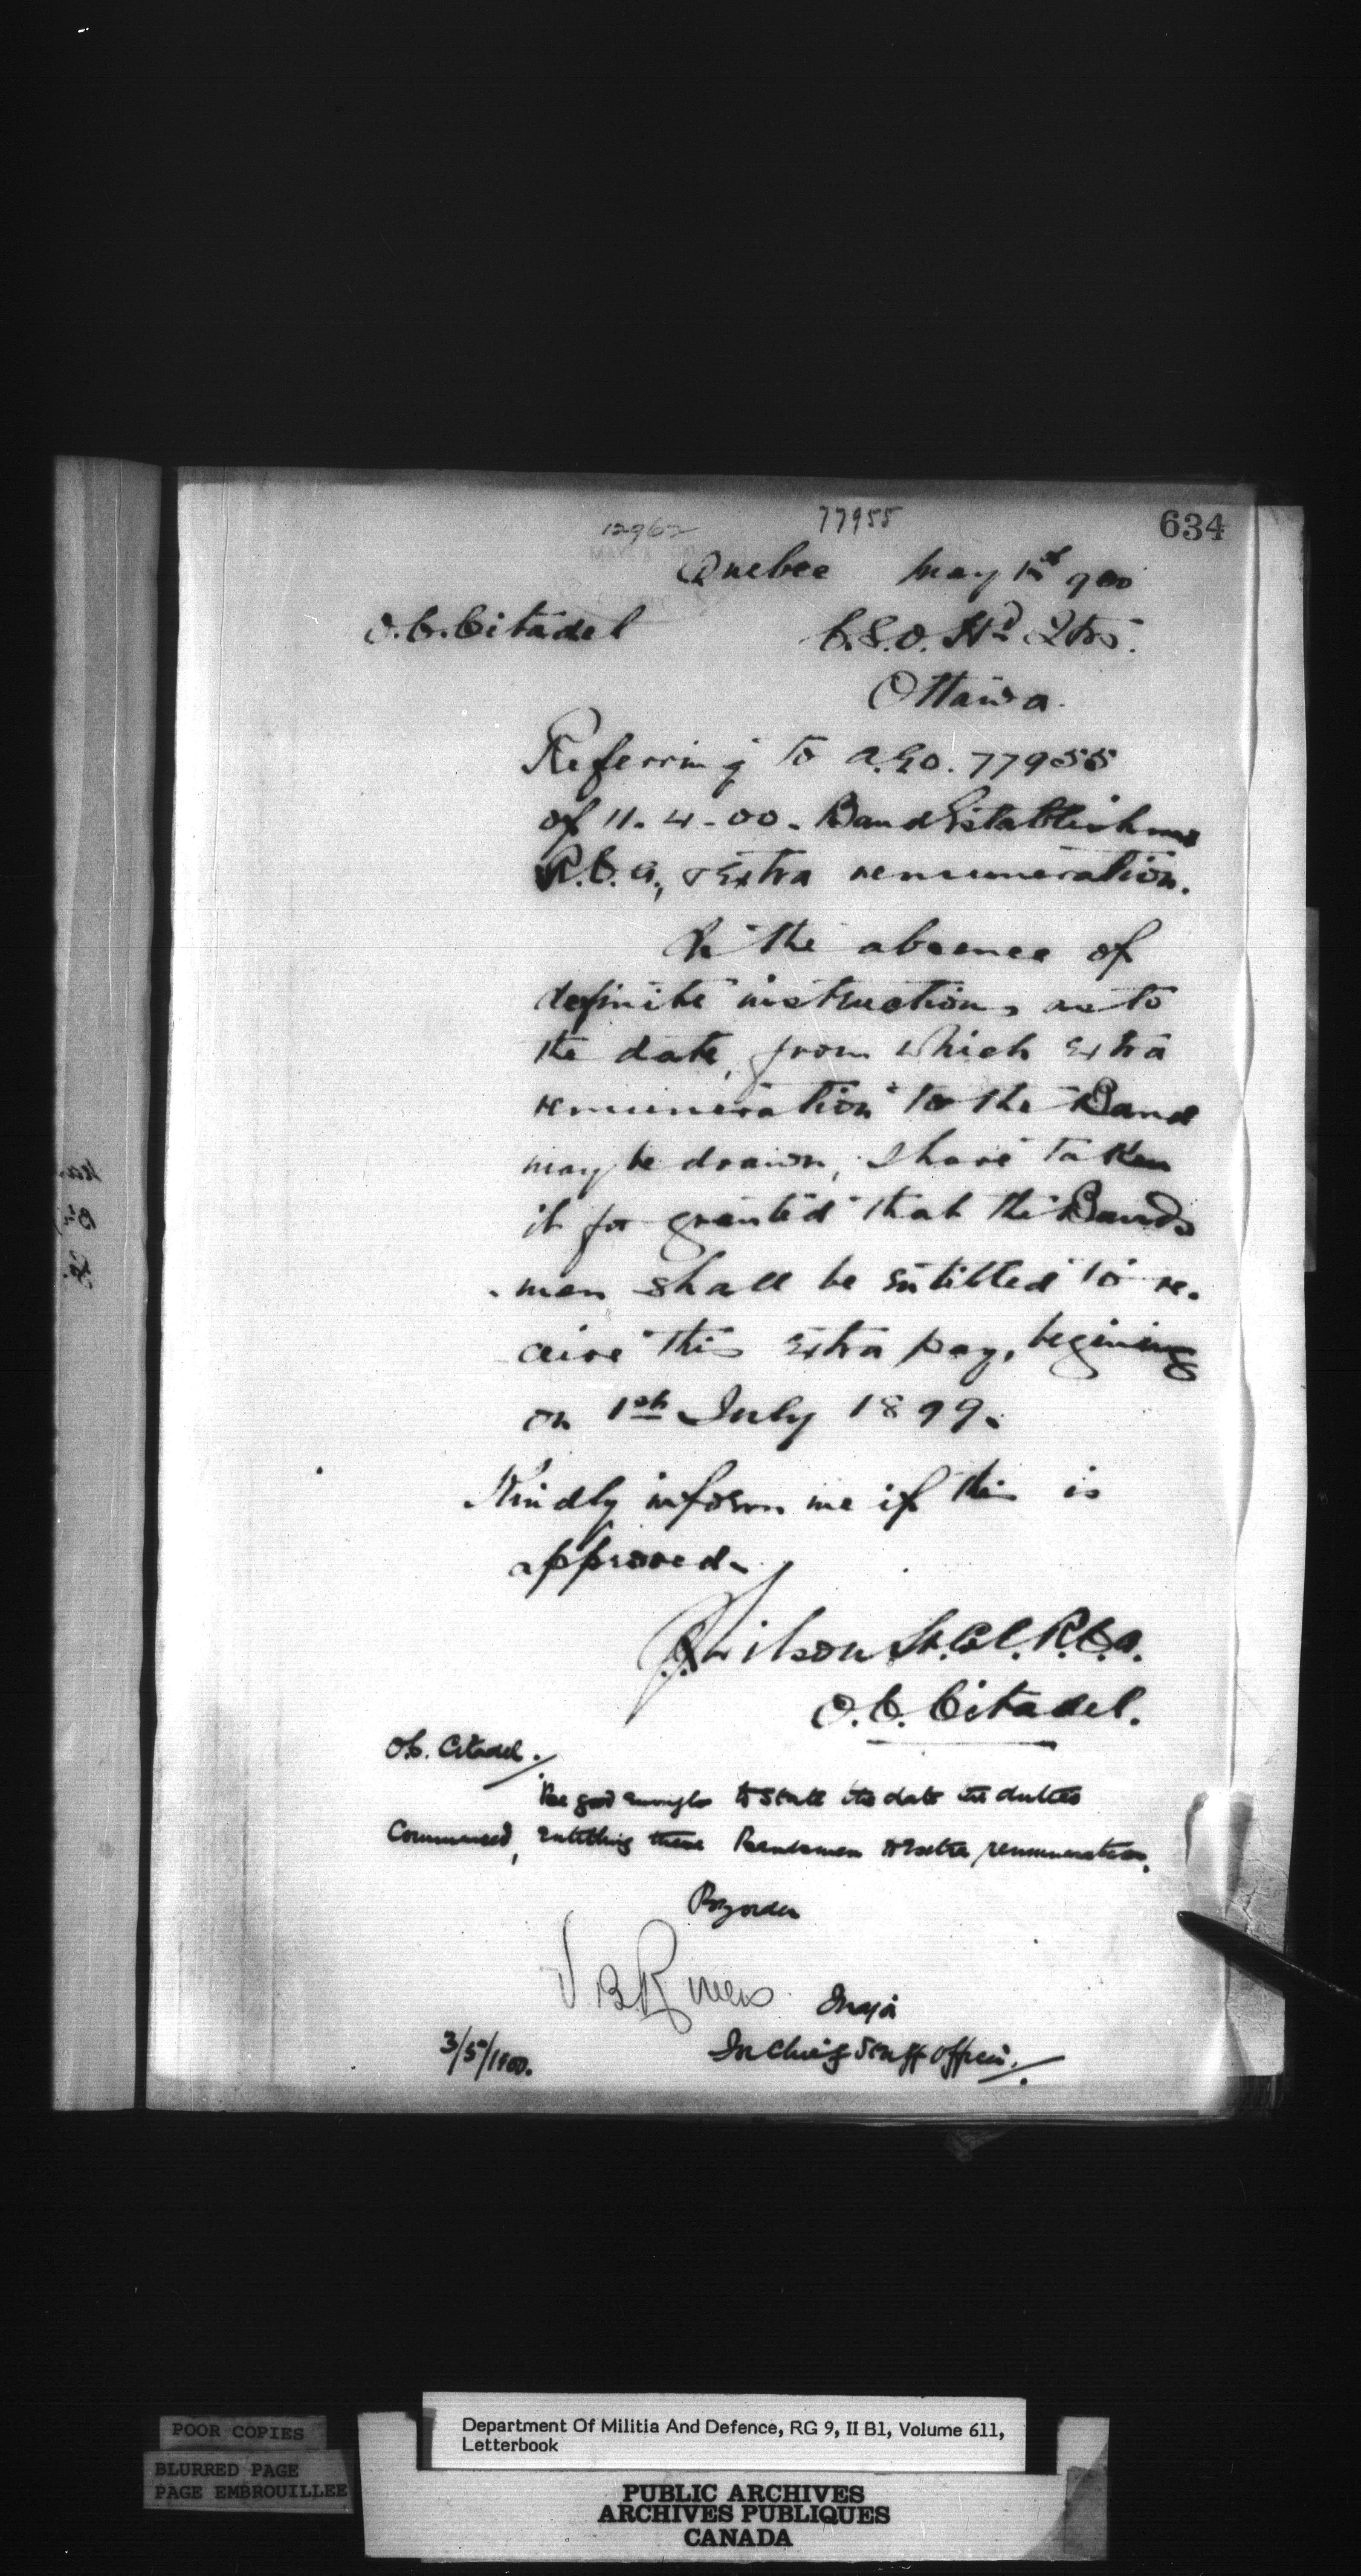 12962 77955 634
Quebec May 1st 900
O.C. Citadel C.S.O. Hd Qtrs.
Ottawa.
Referring to A.G.O. 77955
of 11-4-00. Band Establishme
R.C.A., & Extra remuneration.
In the absence of
definite instructions as to
the date, from which Extra
remuneration to the Band
may be drawn, I have taken
it for granted that the Bands
men shall be Entitled to re-
ceive this Extra pay, begining
on 1st July 1899.
Kindly inform me if this is
approved-
Wilson Lt. Col. R.C.A.
O.C. Citadel.
O.C. Citadel.
Be good enough to state the date the duties
Commenced, entitling these Bandsmen to Extra remuneration.
By order
Major
3/5/1900. Chief Staff Officer.
Department Of Militia And Defence, RG 9, II B1, Volume 611,
Letterbook
POOR COPIES
BLURRED PAGE
PAGE EMBROUILLEE
PUBLIC ARCHIVES
ARCHIVES PUBLIQUES
CANADA